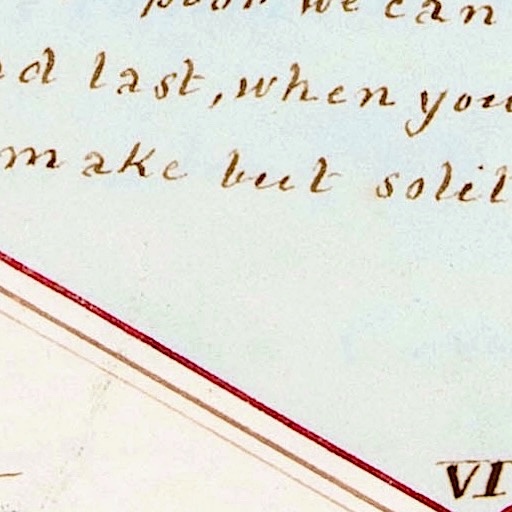 poor we can
d last, when you
make but solit
VI